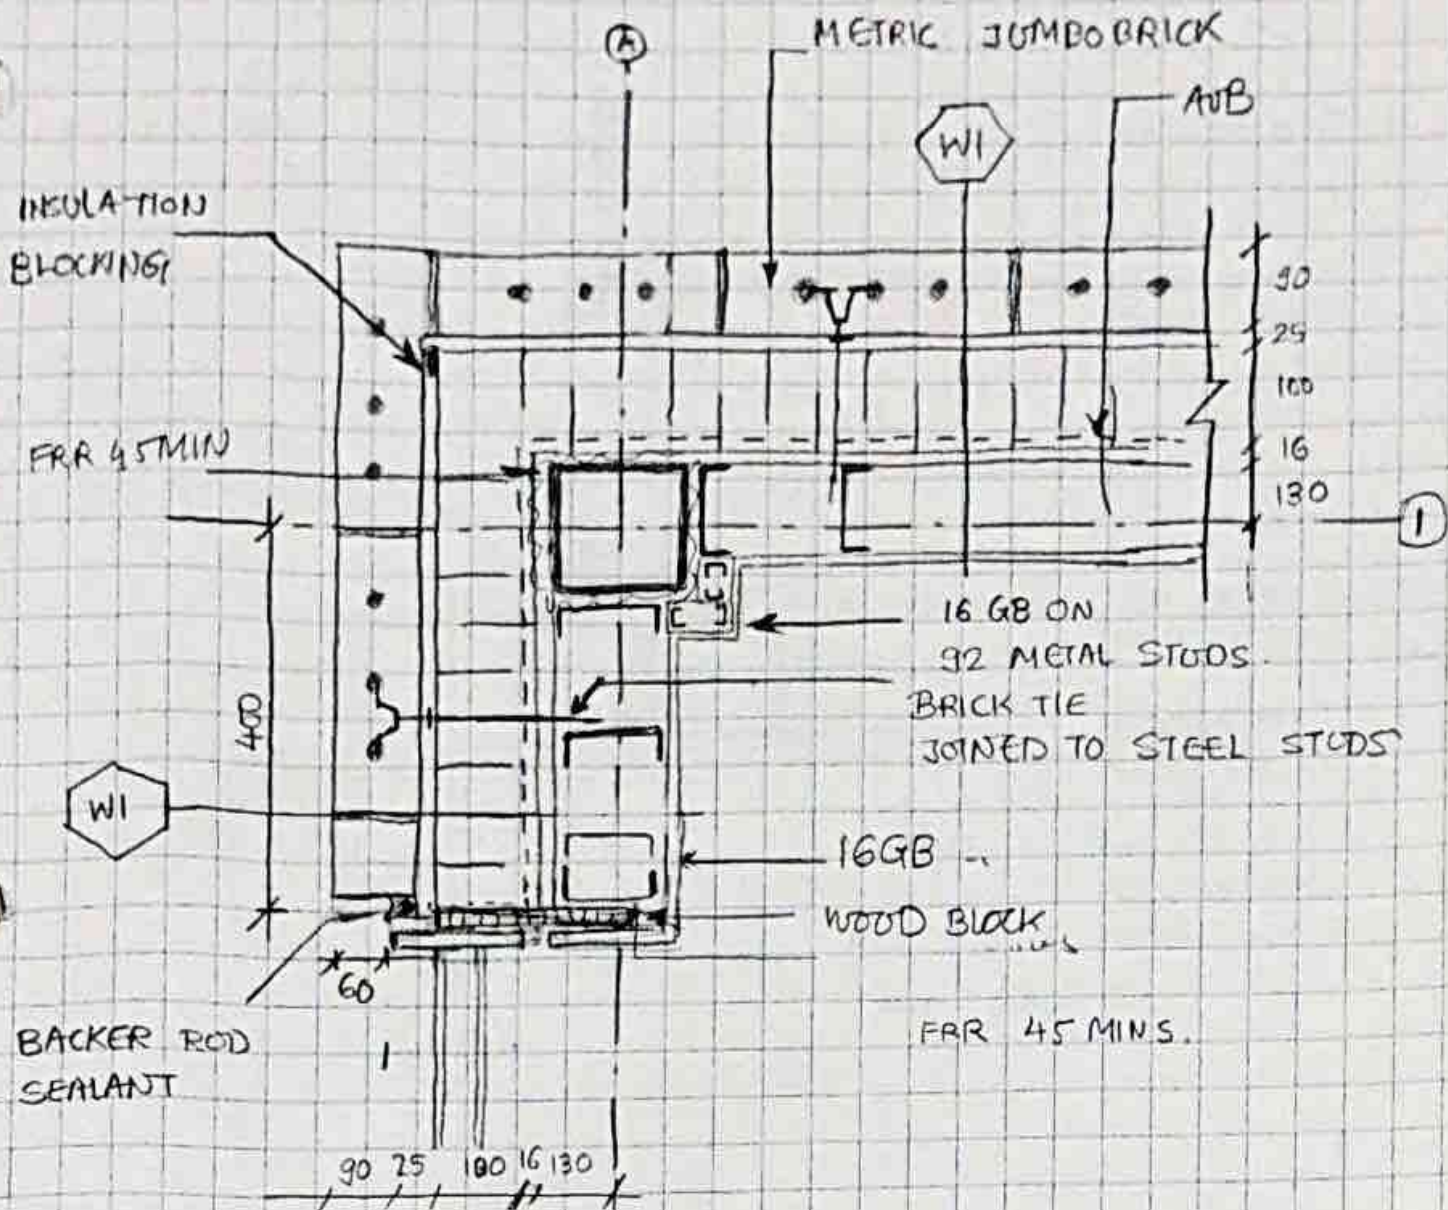 A
METRIC JUMBOBRICK
AVB
W1
INSULATION
BLOCKING
90
25
100
16
130
FRR 45MIN
1
16 GB ON
92 METAL STUDS.
BRICK TIE
JOINED TO STEEL STUDS
400
W1
16GB
WOOD BLOCK
60
BACKER ROD
SEALANT
FRR 45 MINS.
90 25 100 16 130